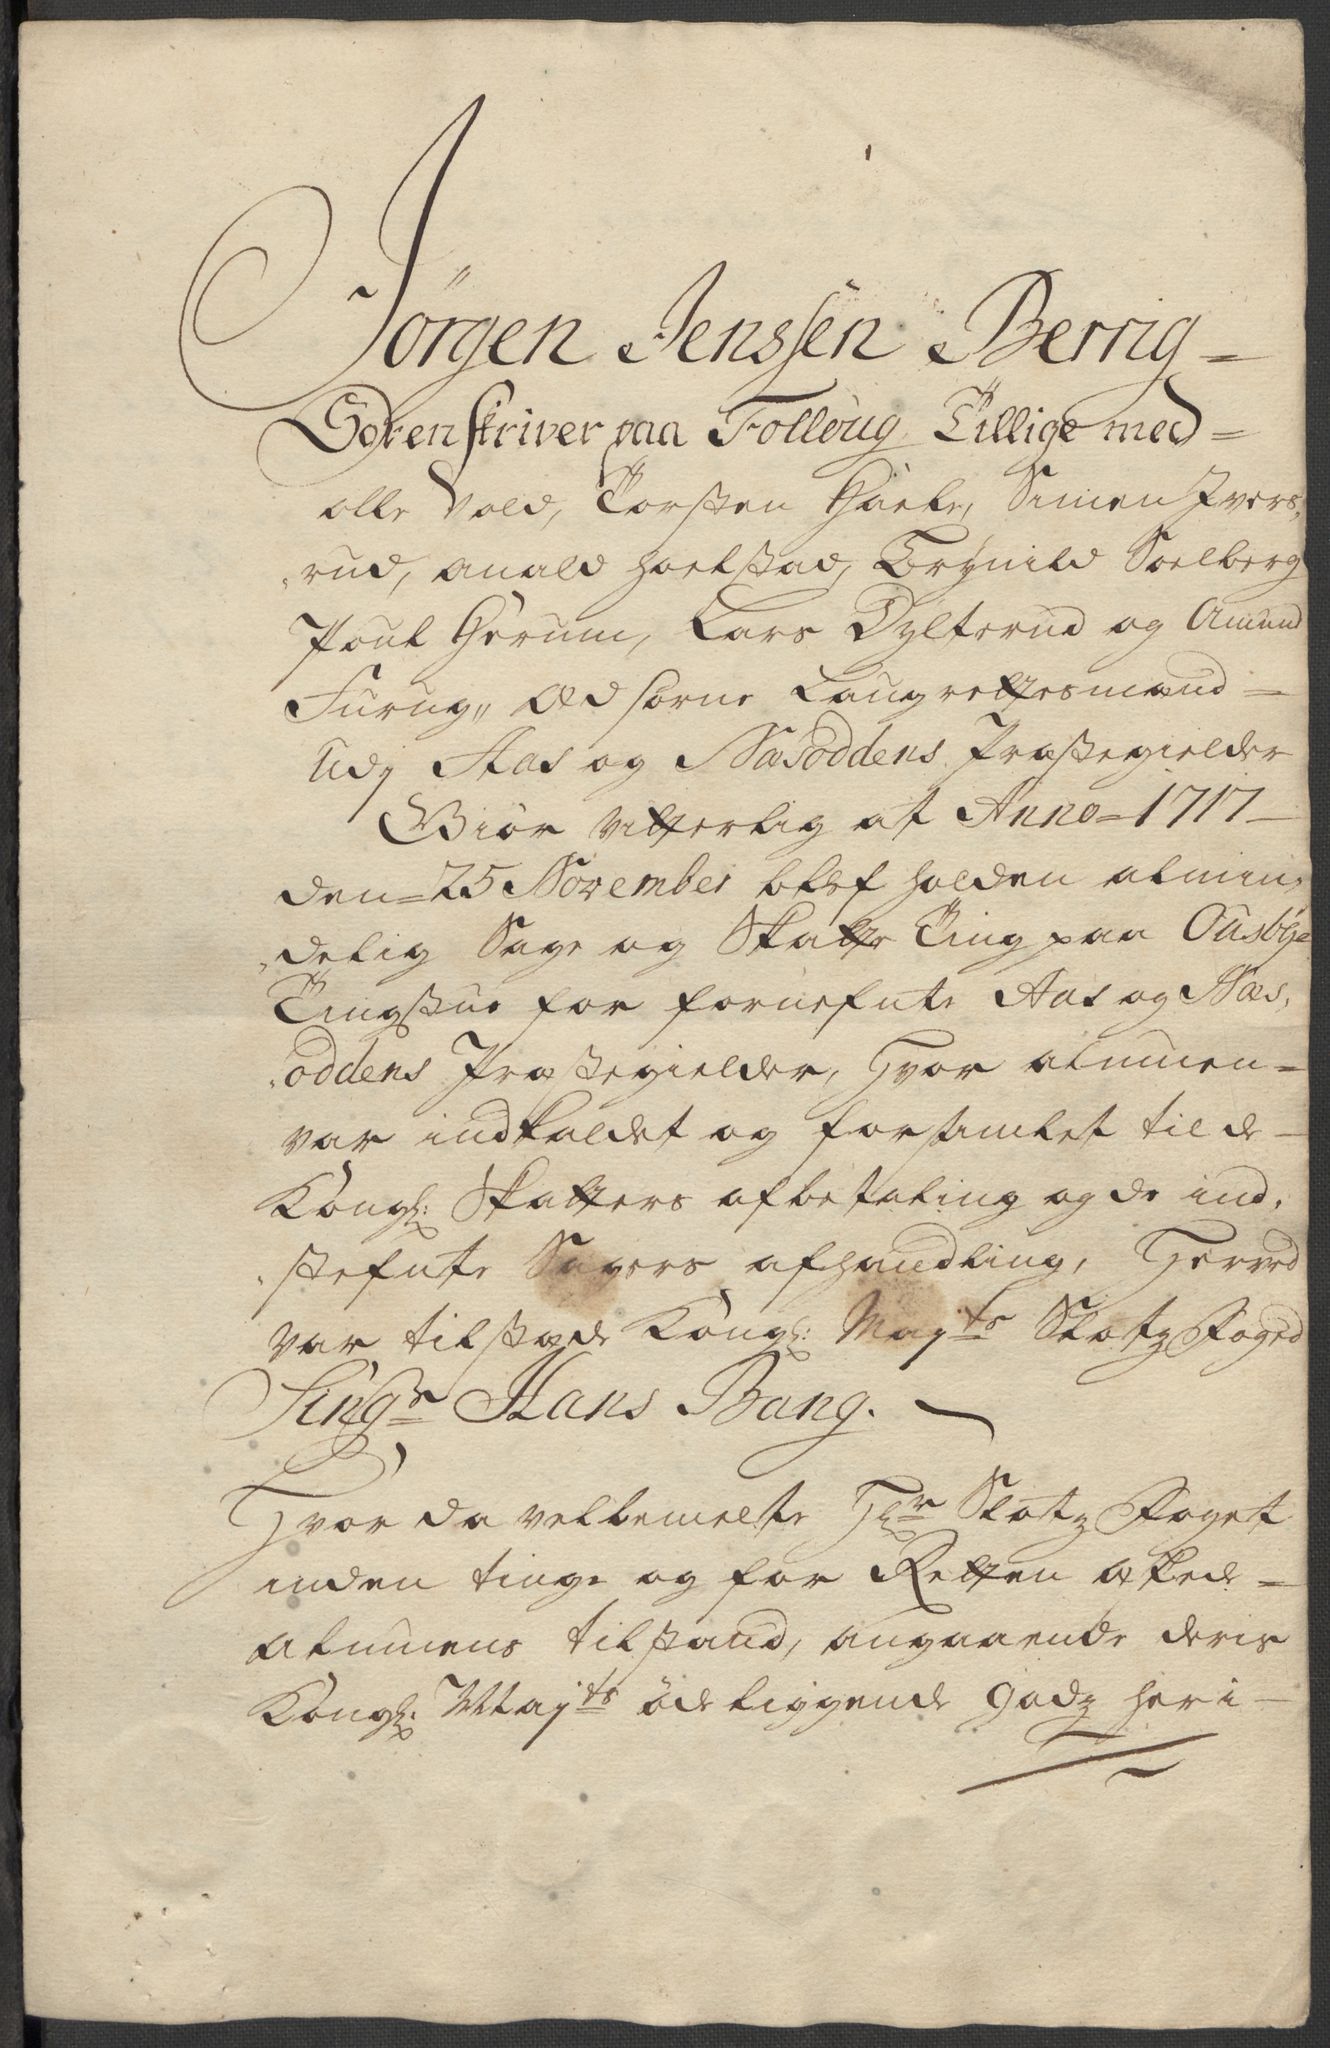 Jörgen Jenssen Berrig =
Sorenskriver paa Follöug Tillige med =
olle Vold, Torsten Giele, Simen Ivers,
,rud, Anald Holstad, Brynild Solberg
Poul Gierum, Lars Dylterud og Amund
Furug,, Æd sorne Laugrettesmænd =
Udj Aas og Næsoddens Præstegielder
Giör vitterlig at Anno = 1717 –
den = 25 November blef holden almin,
,delig Sage og Skatte Ting paa Ousbye
Tingstue for fornefnte Aas og Næs,
,oddens Præstegielder, Hvor almuen =
var indkaldet og forsamlet til de –
Kongl: Skatters afbetaling og de ind,
,stefnte Sagers afhandling, Herved
var tilstæde Kongl: Maj:ts Slotz Foged
Singr Hans Bang. –
Hvor da velbemelte Hr Slotz Foget
inden tinge og for Retten æskede =
almuens tilstand, angaaende deris
Kongl: Maj:ts öde liggende godz her i –